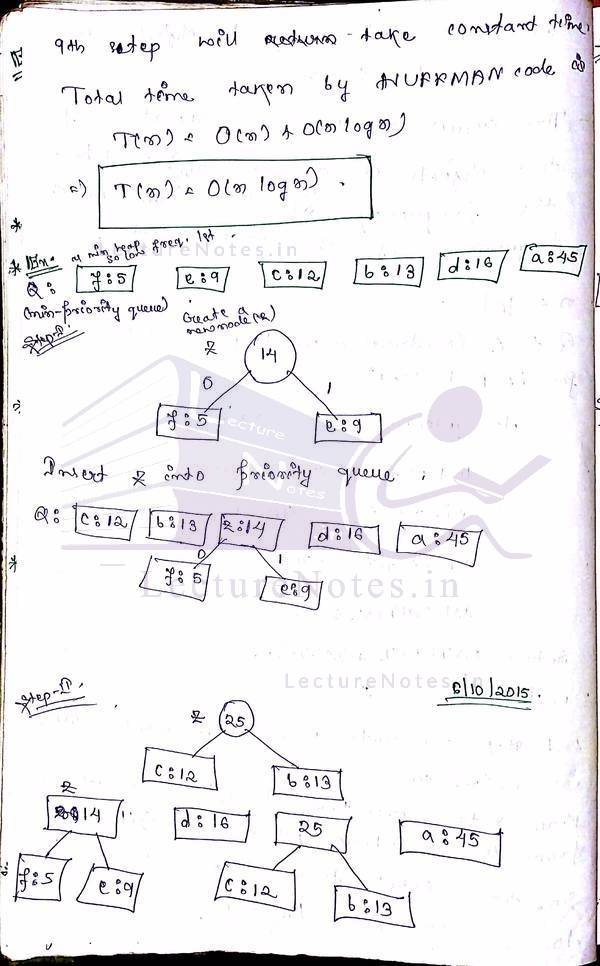 9th step will return take constant time.
Total time taken by HUFFMAN code is
T(n) = O(n) + O(n log n)
=) T(n) = O(n log n).
LectureNotes.in
* Ex:- min heap so low freq. 1st.
Q: f:5 e:9 c:12 b:13 d:16 a:45
(min-priority queue)
Create a new node (z)
Step-I:
z 14
0 1
f:5 e:9
Lecture Notes
Insert z into priority queue.
Q: c:12 b:13 z:14 d:16 a:45
0 1
f:5 e:9
LectureNotes.in
LectureNotes.in
Step-II. 6/10/2015.
z 25
c:12 b:13
z
14 d:16 25 a:45
f:5 e:9 c:12 b:13